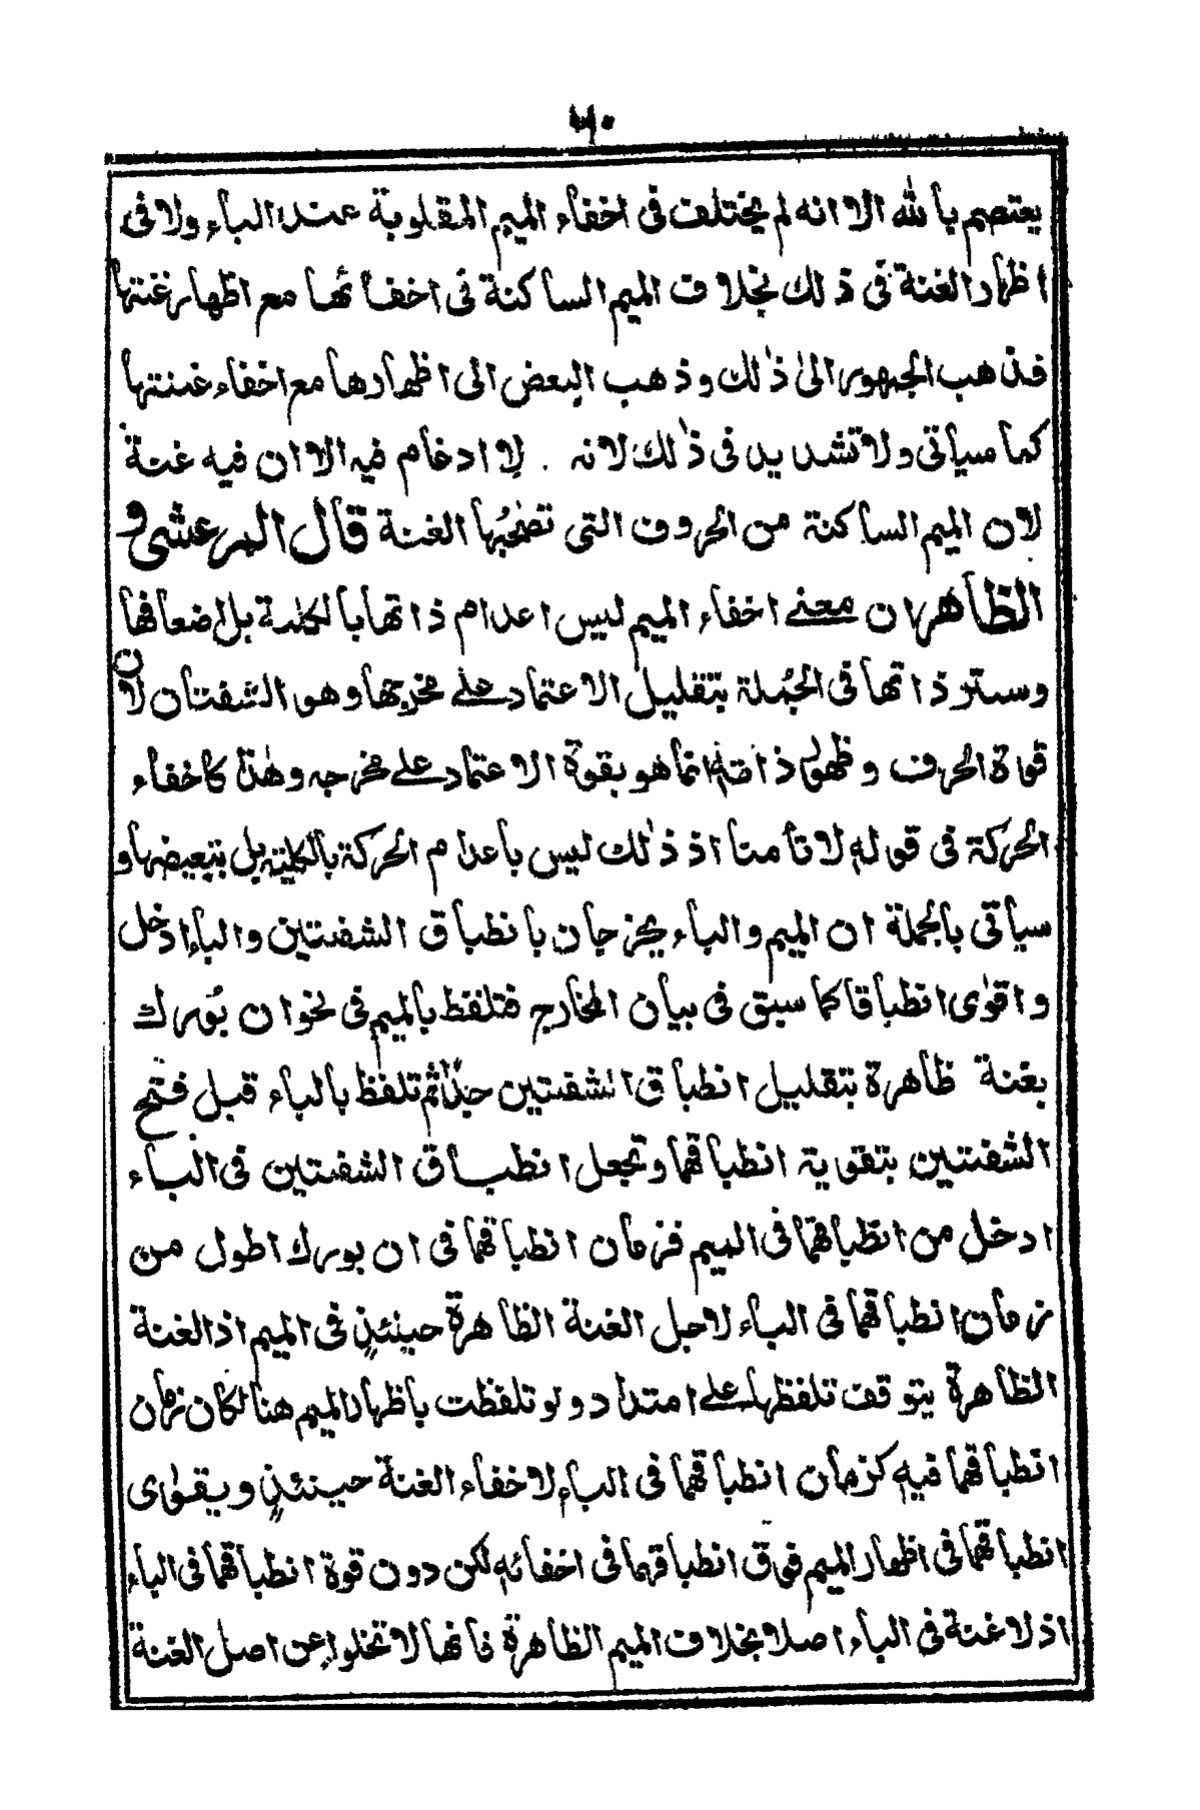 يعتصم بالله الا انه لم يختلف فى اخفاء الميم المقلوبة عند الباء ولا فى
اظهار الغنة فى ذلك بخلاف الميم الساكنة فى اخفائها مع اظهار غنتها
فذهب الجمهور الىٰ ذٰلك وذهب البعض الى اظهارها مع اخفاء غنتها
كما سياتى ولا تشديد فى ذٰلك لانه . لا ادغام فيه الا ان فيه غنة
لان الميم الساكنة من الحروف التى تصحبُها الغنة قال المرعشى و
الظاهر ان معنے اخفاء الميم ليس اعدام ذاتها بالكلية بل اضعافها
وستر ذاتها فى الجُملة بتقليل الاعتماد علے مخرجها وهو الشفتان لان
قوة الحرف وظهور ذاته انما هو بقوة الاعتماد علے مخرجه وهٰذا كاخفاء
الحركة فى قوله لا تأمنا اذ ذٰلك ليس باعدام الحركة بالكلية بل بتبعيضها و
سياتى بالجملة ان الميم والباء يخرجان بانطباق الشفتين والباء ادخل
واقوٰى انطباقا كما سبق فى بيان المخارج فتلفظ بالميم فى نحو ان بُورك
بغنة ظاهرة بتقليل انطباق الشفتين جدًا ثم تلفظ بالباء قبل فتح
الشفتين بتقوية انطباقهما وتجعل انطباق الشفتين فى الباء
ادخل من انطباقهما فى الميم فزمان انطباقهما فى ان بورك اطول من
زمان انطباقهما فى الباء لاجل الغنة الظاهرة حينئذٍ فى الميم اذ الغنة
الظاهرة يتوقف تلفظها علے امتداد ولو تلفظت باظهار الميم هنا لكان زمان
انطباقهما فيه كزمان انطباقهما فى الباء لاخفاء الغنة حينئذٍ ويقوٰى
انطباقهما فى اظهار الميم فوق انطباقهما فى اخفائه لكن دون قوة انطباقهما فى الباء
اذ لا غنة فى الباء اصلا بخلاف الميم الظاهرة فانها لا تخلوا عن اصل الغنة